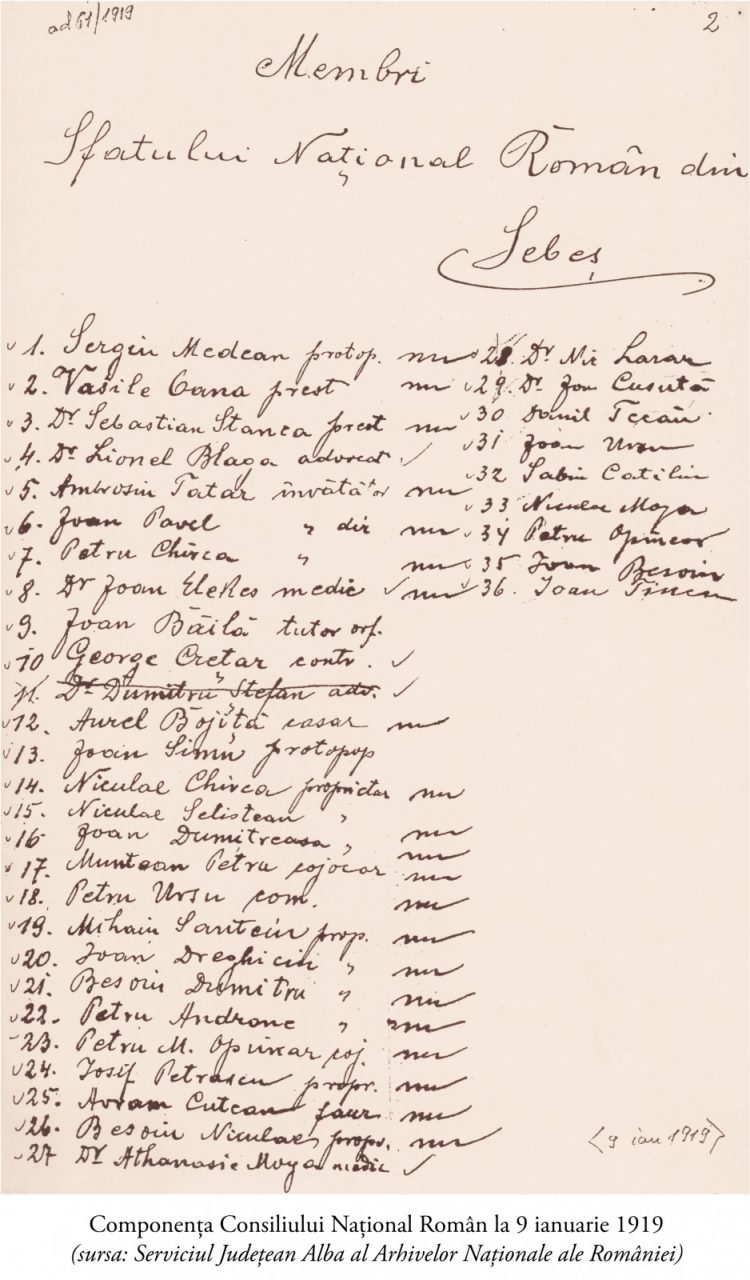 ad 61/1919
2
Membri
Sfatului Național Român din
Sebeș
1. Sergiu Medean protop. nu
2. Vasile Oana preot nu
3. Dr Sebastian Stanca preot nu
4. Dr. Lionel Blaga advocat ✓
5. Ambrosiu Tatar învătător nu
6. Joan Pavel " dir nu
7. Petru Chirca " nu
8. Dr Joan Elekes medic ✓ nu
9. Joan Băilă tutor orf.
10 George Cretar contr. ✓
11. Dr Dumitru Stefan adv. ✓
12. Aurel Bojiță casar nu
13. Joan Simu protopop
14. Niculae Chirca propriitar nu
15. Niculae Selistean "
16 Joan Dumitreasa " nu
17. Muntean Petru cojocar nu
18. Petru Ursu com. nu
19. Mihaiu Santeiu prop. nu
20. Joan Dreghiciu " nu
21. Besoiu Dumitru " nu
22. Petru Andronc " nu
23. Petru M. Opincar coj. nu
24. Iosif Petrascu propr. nu
25. Avram Cutean faur nu
26. Besoiu Niculae propr. nu
27 Dr Athanasie Moga medic ✓
28. Dr. Nic Lazar
29. Dr. Jon Cusută
30 Danil Tecău
31 Joan Ursu
32 Sabin Catiliu
33 Niculae Moga
34 Petru Opincar
35 Joan Besoiu
36. Joan Tincu
<9 ian 1919>
Componența Consiliului Național Român la 9 ianuarie 1919
(sursa: Serviciul Județean Alba al Arhivelor Naționale ale României)